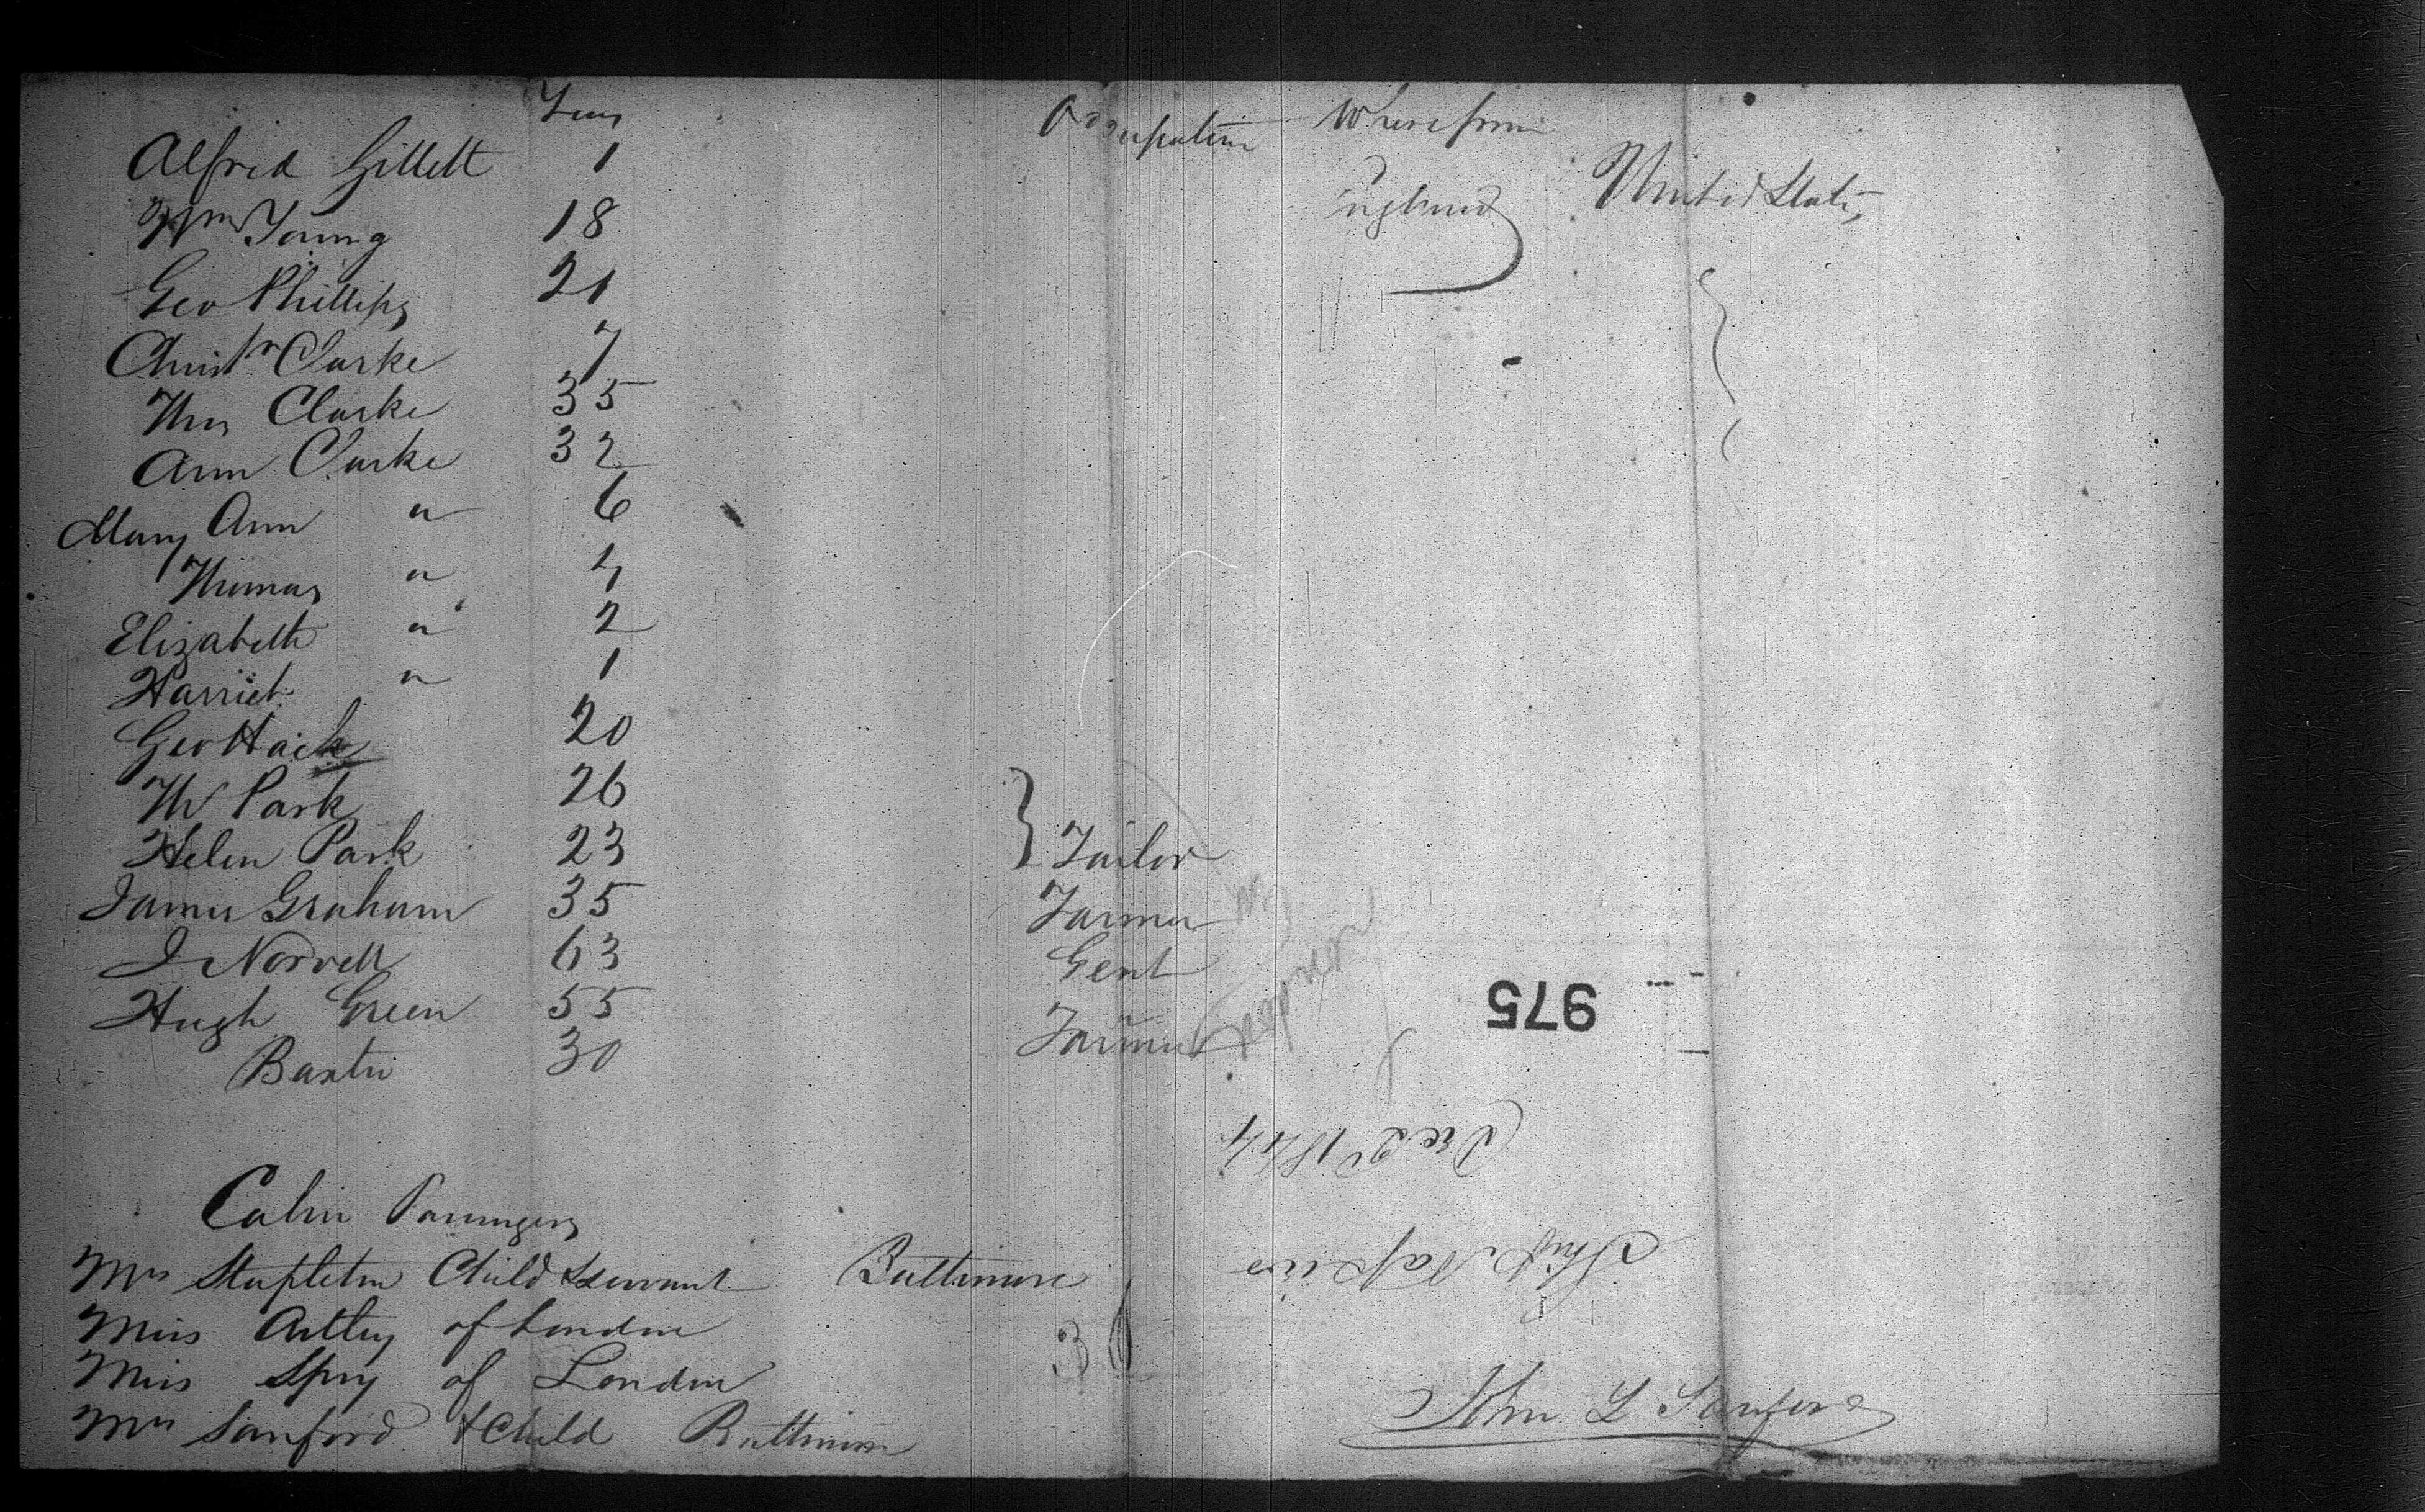 Years Occupation Where from
Alfred Gillett 1 England United States
Wm Young 18
Geo Phillips 21
Christr Clarke 7
Thos Clarke 35
Ann Clarke 32
Mary Ann " 6
Thomas " 4
Elizabeth " 2
Harriet " 1
Geo Hack 20
W Park 26
Helen Park 23 } Tailor
James Graham 35 Farmer
J Norvell 63 Gent
Hugh Green 55 Farmer
Baxter 30
975
Dec 2 1844
Ship Napier
Cabin Passengers
Mrs Stapleton Child & Servant Baltimore
Miss of London
Miss Spry of London
Mrs Sanford & Child Baltimore
John L Sanford